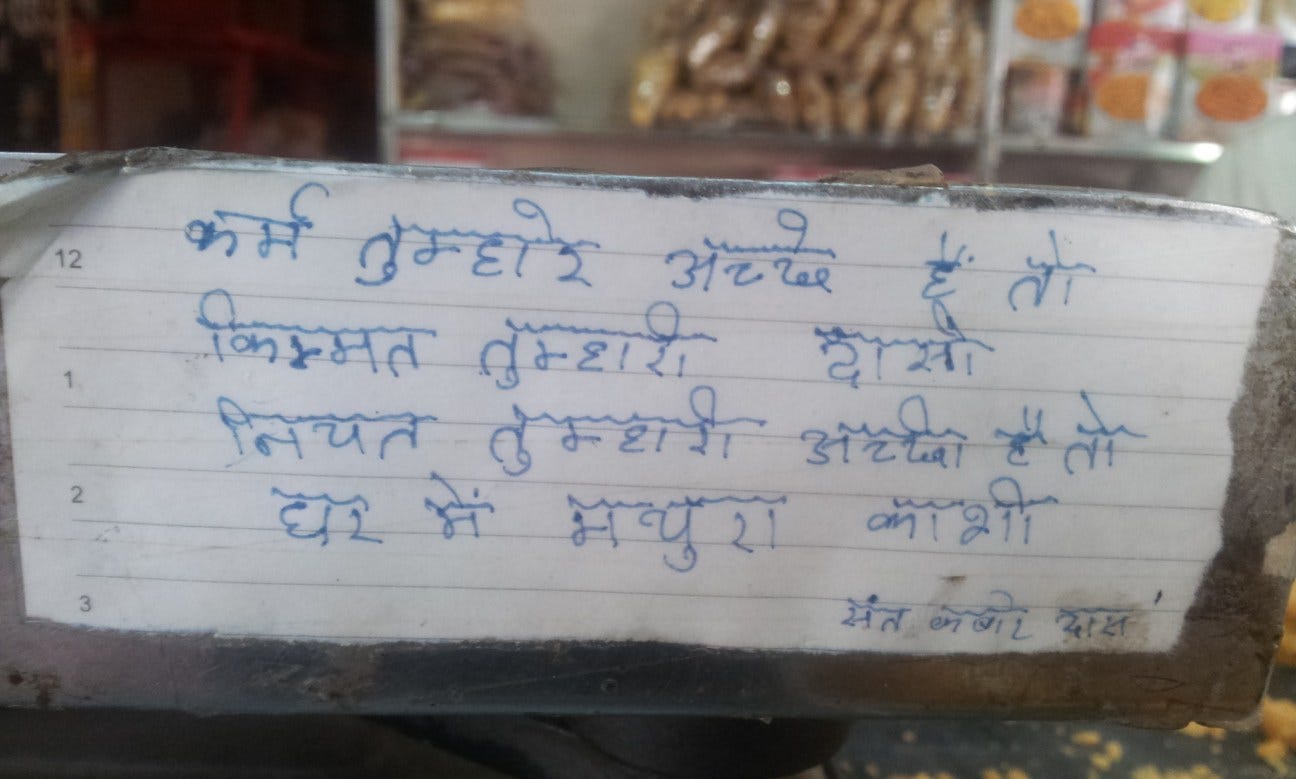 12 कर्म तुम्हारे अच्छे हैं तो
किस्मत तुम्हारी दासी
1
नियत तुम्हारी अच्छी है तो
2 घर में मथुरा काशी
3 संत कबीर दास